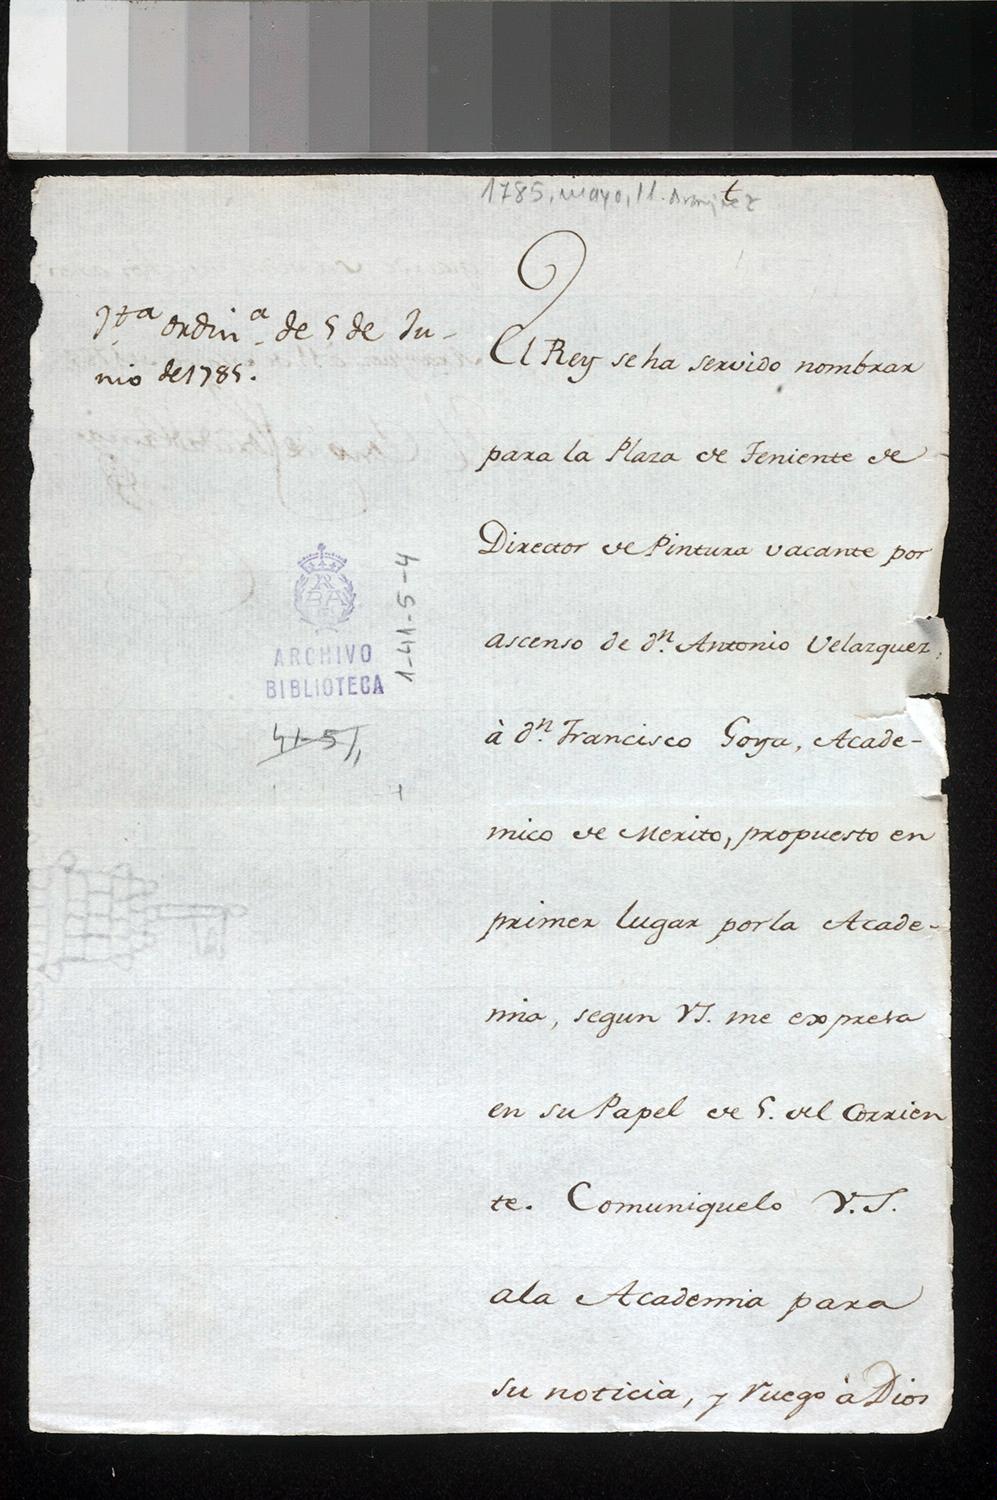 1785, mayo, 11. Aranjuez
Jta ordina. de 5 de Ju-
nio de 1785.
El Rey se ha servido nombrar
para la Plaza de Teniente de
Director de Pintura vacante por
ascenso de dn. Antonio Velazquez,
à dn. Francisco Goya, Acade-
mico de Merito, propuesto en
primer lugar por la Acade-
mia, segun VS. me expresa
en su Papel de 5. del Corrien
te. Comuniquelo V.S.
ala Academia para
su noticia, y ruego à Dios
RABA
ARCHIVO
BIBLIOTECA
1-41-5-4
41-5/1